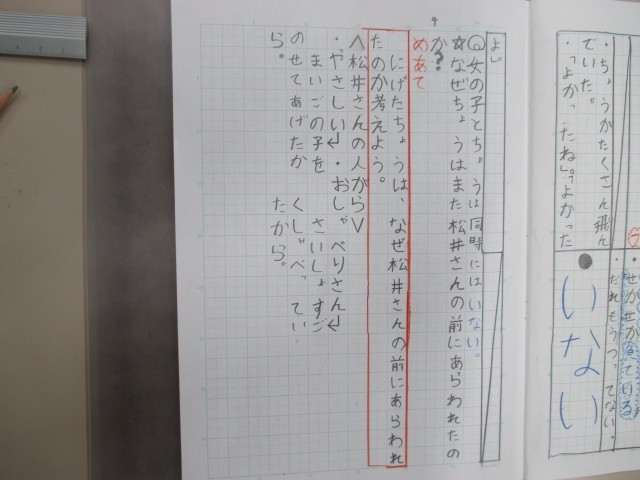 せかせか急いでいる
だれもうつってない。
・ちょうがたくさん飛ん
でいた。
・「よかったね」。「よかった
いない
よ」。
4
Q女の子とちょうは同時にはいない。
☆なぜちょうはまた松井さんの前にあらわれたの
か？
めあて
にげたちょうは、なぜ松井さんの前にあらわれ
たのか考えよう。
＜松井さんの人がら＞
・やさしい↲
まいごの子を
のせてあげたか
ら。
・おしゃべりさん↲
さいしょすご
くしゃべってい
たから。